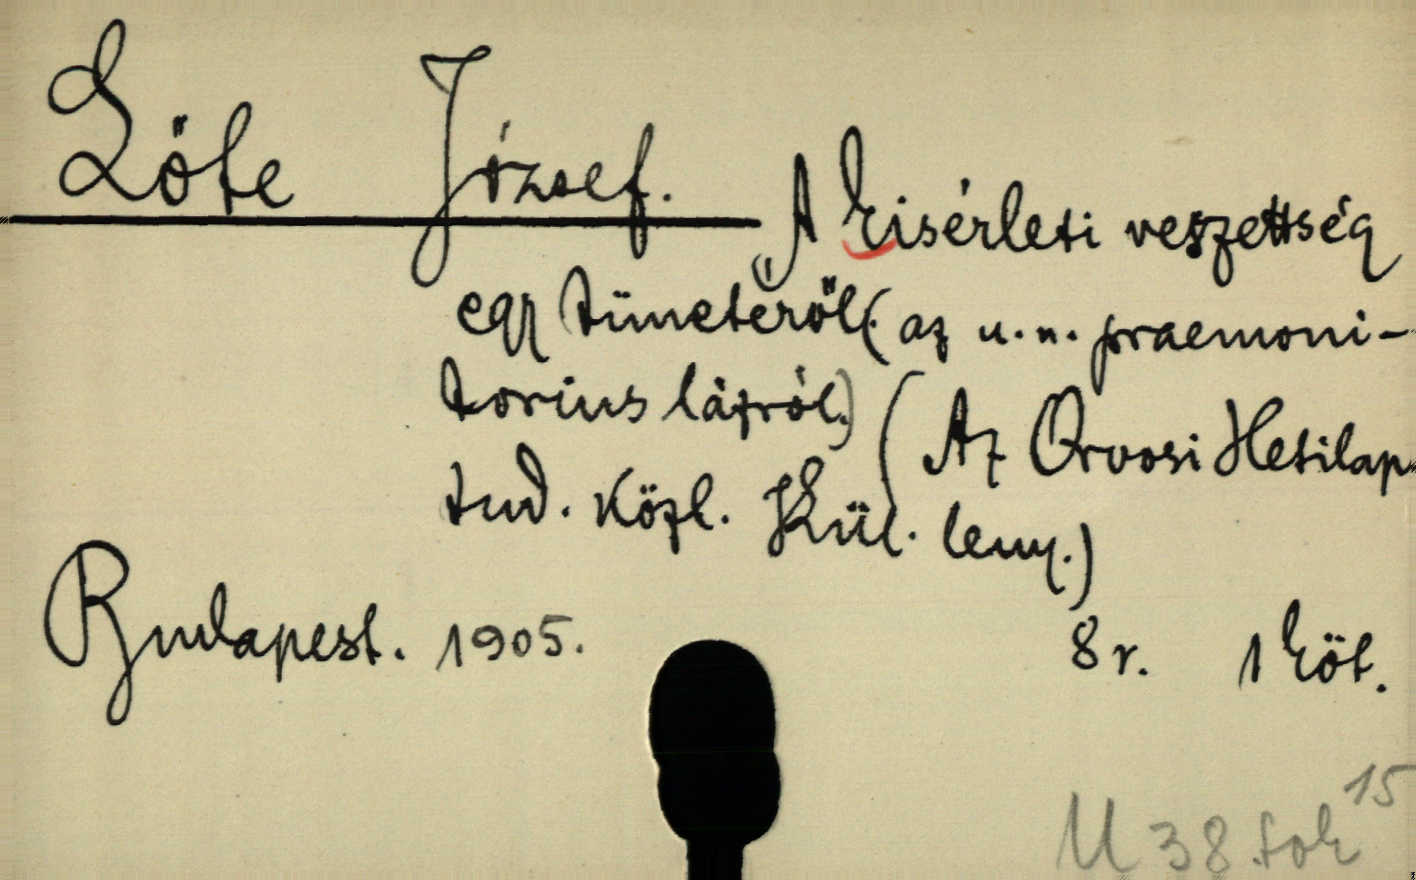 Lőte József.
„A kisérleti veszettség
egy tünetéről (az u. n. praemoni-
torius lázról.) (Az Orvosi Hetilap
tud. Közl. Kül. leny.)
Budapest. 1905. 8 r. 1 köt.
U 38. tok 15